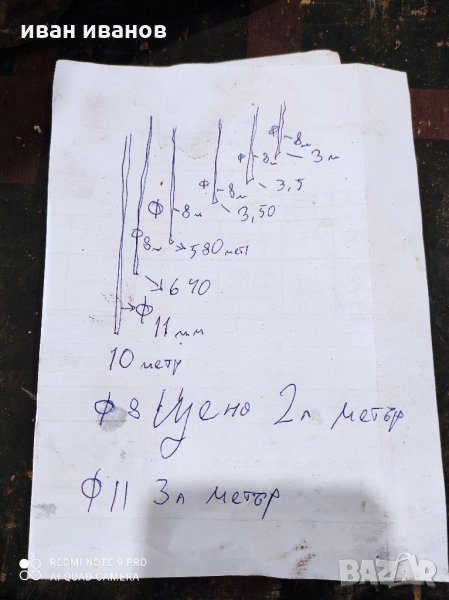 иван иванов
ф 8м 3 м
ф 8м 3,5
ф 8м 3,50
ф 8м 580 мет
ф 8м 640
ф 11 мм
10 метр
ф 8 Цена 2л метър
ф 11 3л метър
REDMI NOTE 9 PRO
AI QUAD CAMERA
BAZAR